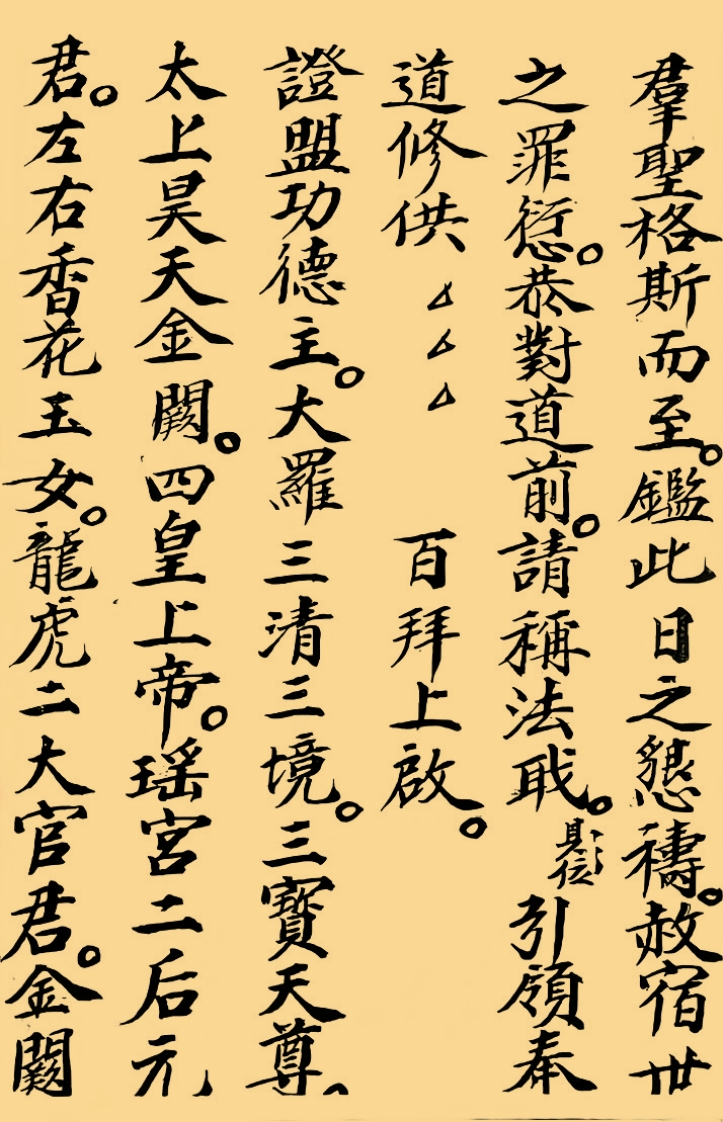 羣聖格斯而至。鑑此日之懇禱。赦宿世
之罪愆。恭對道前。請稱法職。具位 引領奉
道修供 △△△ 百拜上啟。
證盟功德主。大羅三清三境。三寶天尊、
太上昊天金闕。四皇上帝。瑶宮二后元
君。左右香花玉女。龍虎二大官君。金闕